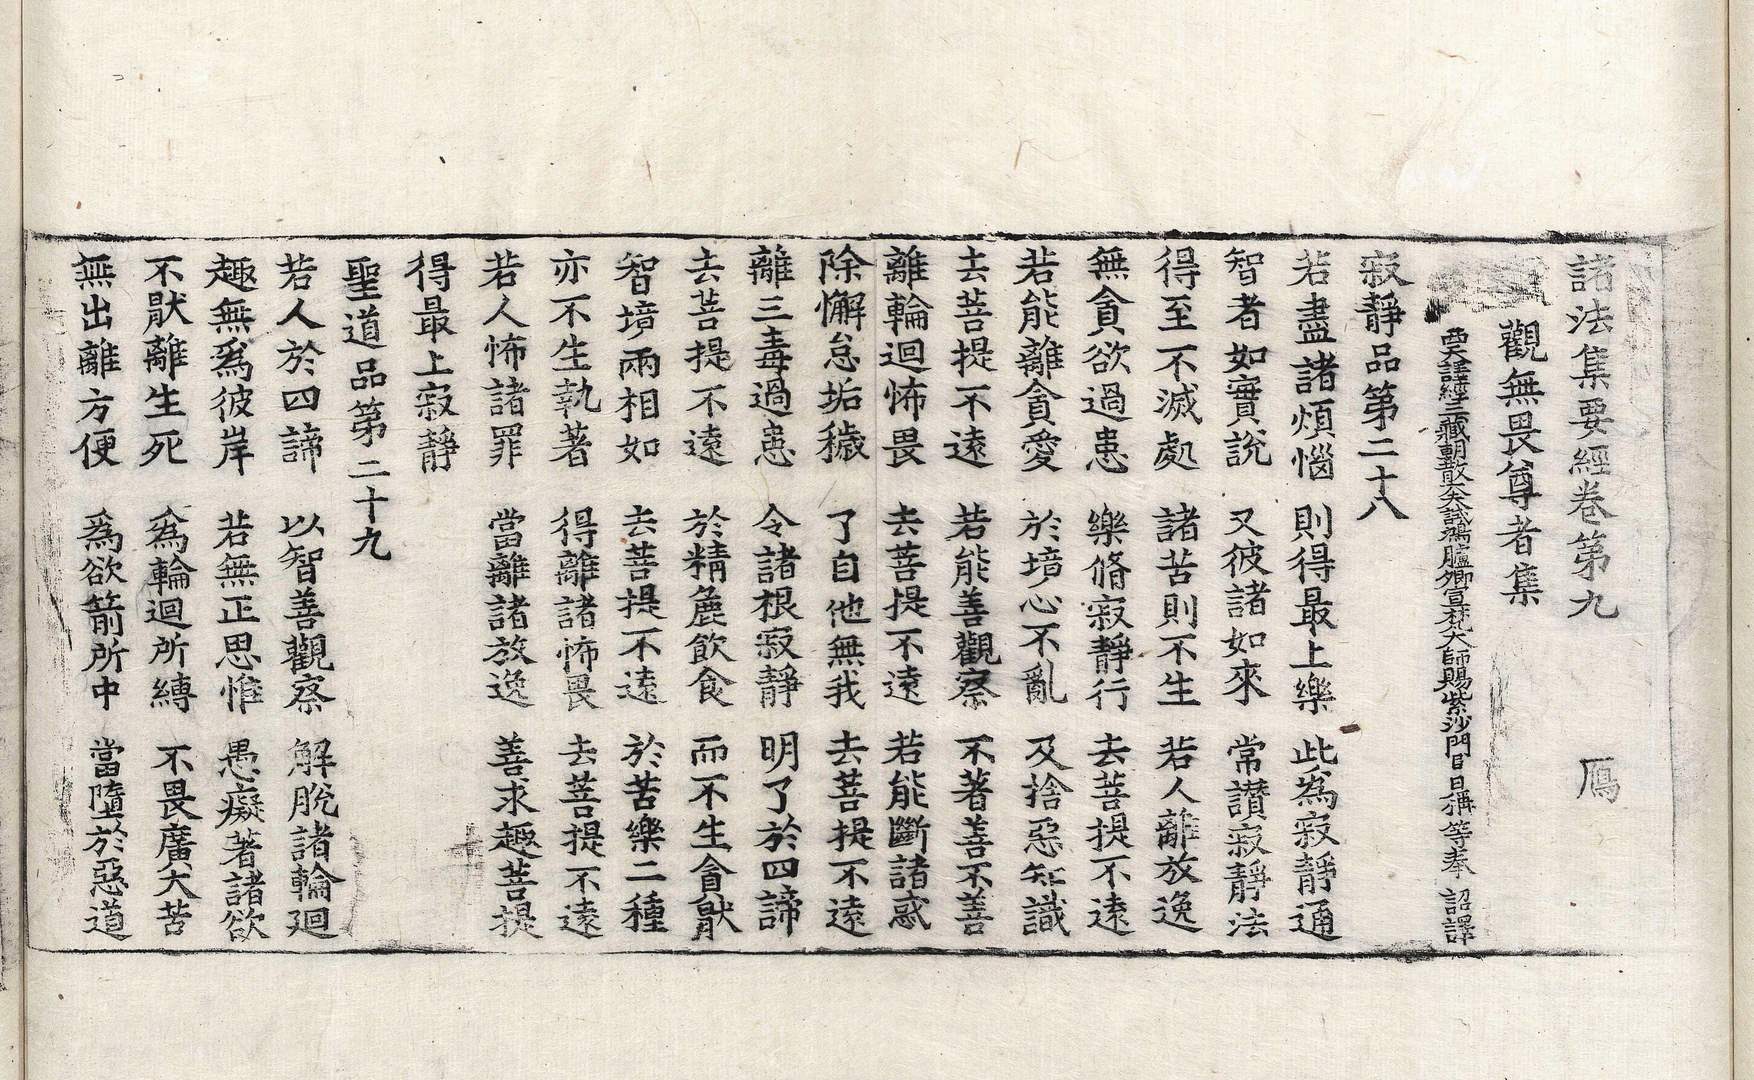 諸法集要經卷第九　鴈
觀無畏尊者集
西天譯經三藏朝散大夫試鴻臚卿宣梵大師賜紫沙門臣日稱等奉　詔譯
寂靜品第二十八
若盡諸煩惱　則得最上樂　此為寂靜通
智者如實說　又彼諸如來　常讚寂靜法
得至不滅處　諸苦則不生　若人離放逸
無貪欲過患　樂脩寂靜行　去菩提不遠
若能離貪愛　於境心不亂　及捨惡知識
去菩提不遠　若能善觀察　不著善不善
離輪迴怖畏　去菩提不遠　若能斷諸惑
除懈怠垢穢　了自他無我　去菩提不遠
離三毒過患　令諸根寂靜　明了於四諦
去菩提不遠　於精麁飲食　而不生貪猒
智境兩相如　去菩提不遠　於苦樂二種
亦不生執著　得離諸怖畏　去菩提不遠
若人怖諸罪　當離諸放逸　善求趣菩提
得最上寂靜
聖道品第二十九
若人於四諦　以智善觀察　解脫諸輪迴
趣無為彼岸　若無正思惟　愚癡著諸欲
不猒離生死　為輪迴所縛　不畏廣大苦
無出離方便　為欲箭所中　當墮於惡道